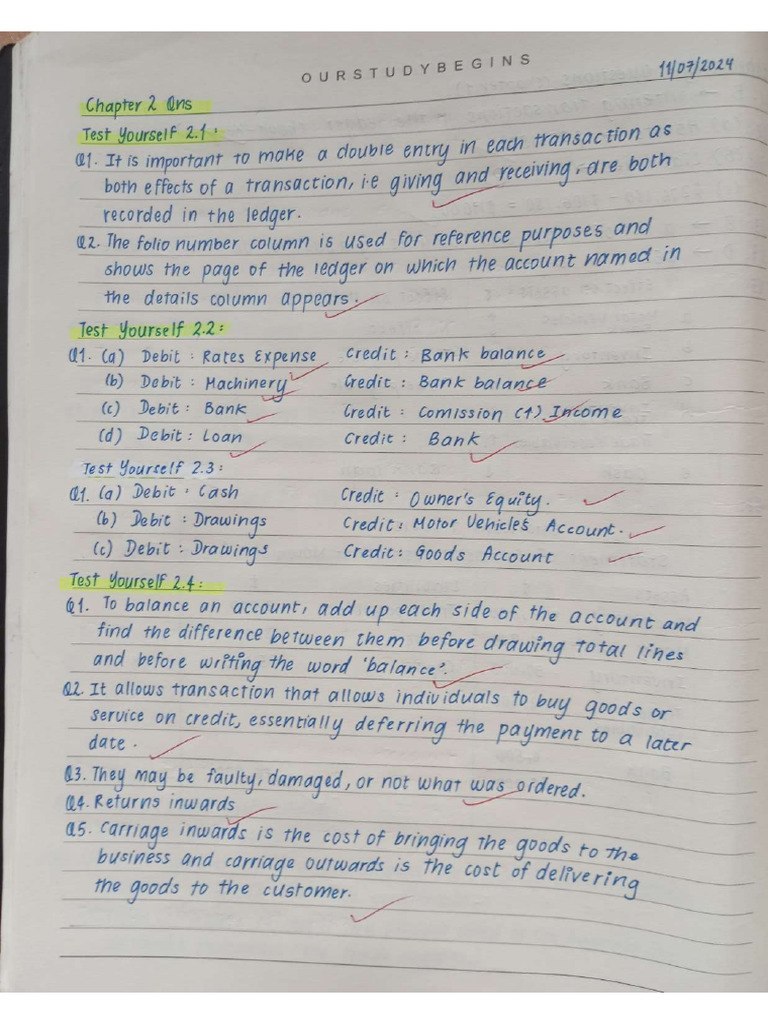 OURSTUDYBEGINS
11/07/2024
Chapter 2 Qns
Test Yourself 2.1:
Q1. It is important to make a double entry in each transaction as
both effects of a transaction, i.e giving and receiving, are both
recorded in the ledger.
Q2. The folio number column is used for reference purposes and
shows the page of the ledger on which the account named in
the details column appears.
Test Yourself 2.2:
Q1. (a) Debit : Rates Expense Credit : Bank balance
(b) Debit : Machinery Credit : Bank balance
(c) Debit : Bank Credit : Comission (↑) Income
(d) Debit : Loan Credit : Bank
Test Yourself 2.3:
Q1. (a) Debit : Cash Credit : Owner's Equity.
(b) Debit : Drawings Credit : Motor Vehicles Account.
(c) Debit : Drawings Credit : Goods Account
Test Yourself 2.4:
Q1. To balance an account, add up each side of the account and
find the difference between them before drawing total lines
and before writing the word 'balance'.
Q2. It allows transaction that allows individuals to buy goods or
service on credit, essentially deferring the payment to a later
date.
Q3. They may be faulty, damaged, or not what was ordered.
Q4. Returns inwards
Q5. Carriage inwards is the cost of bringing the goods to the
business and carriage outwards is the cost of delivering
the goods to the customer.